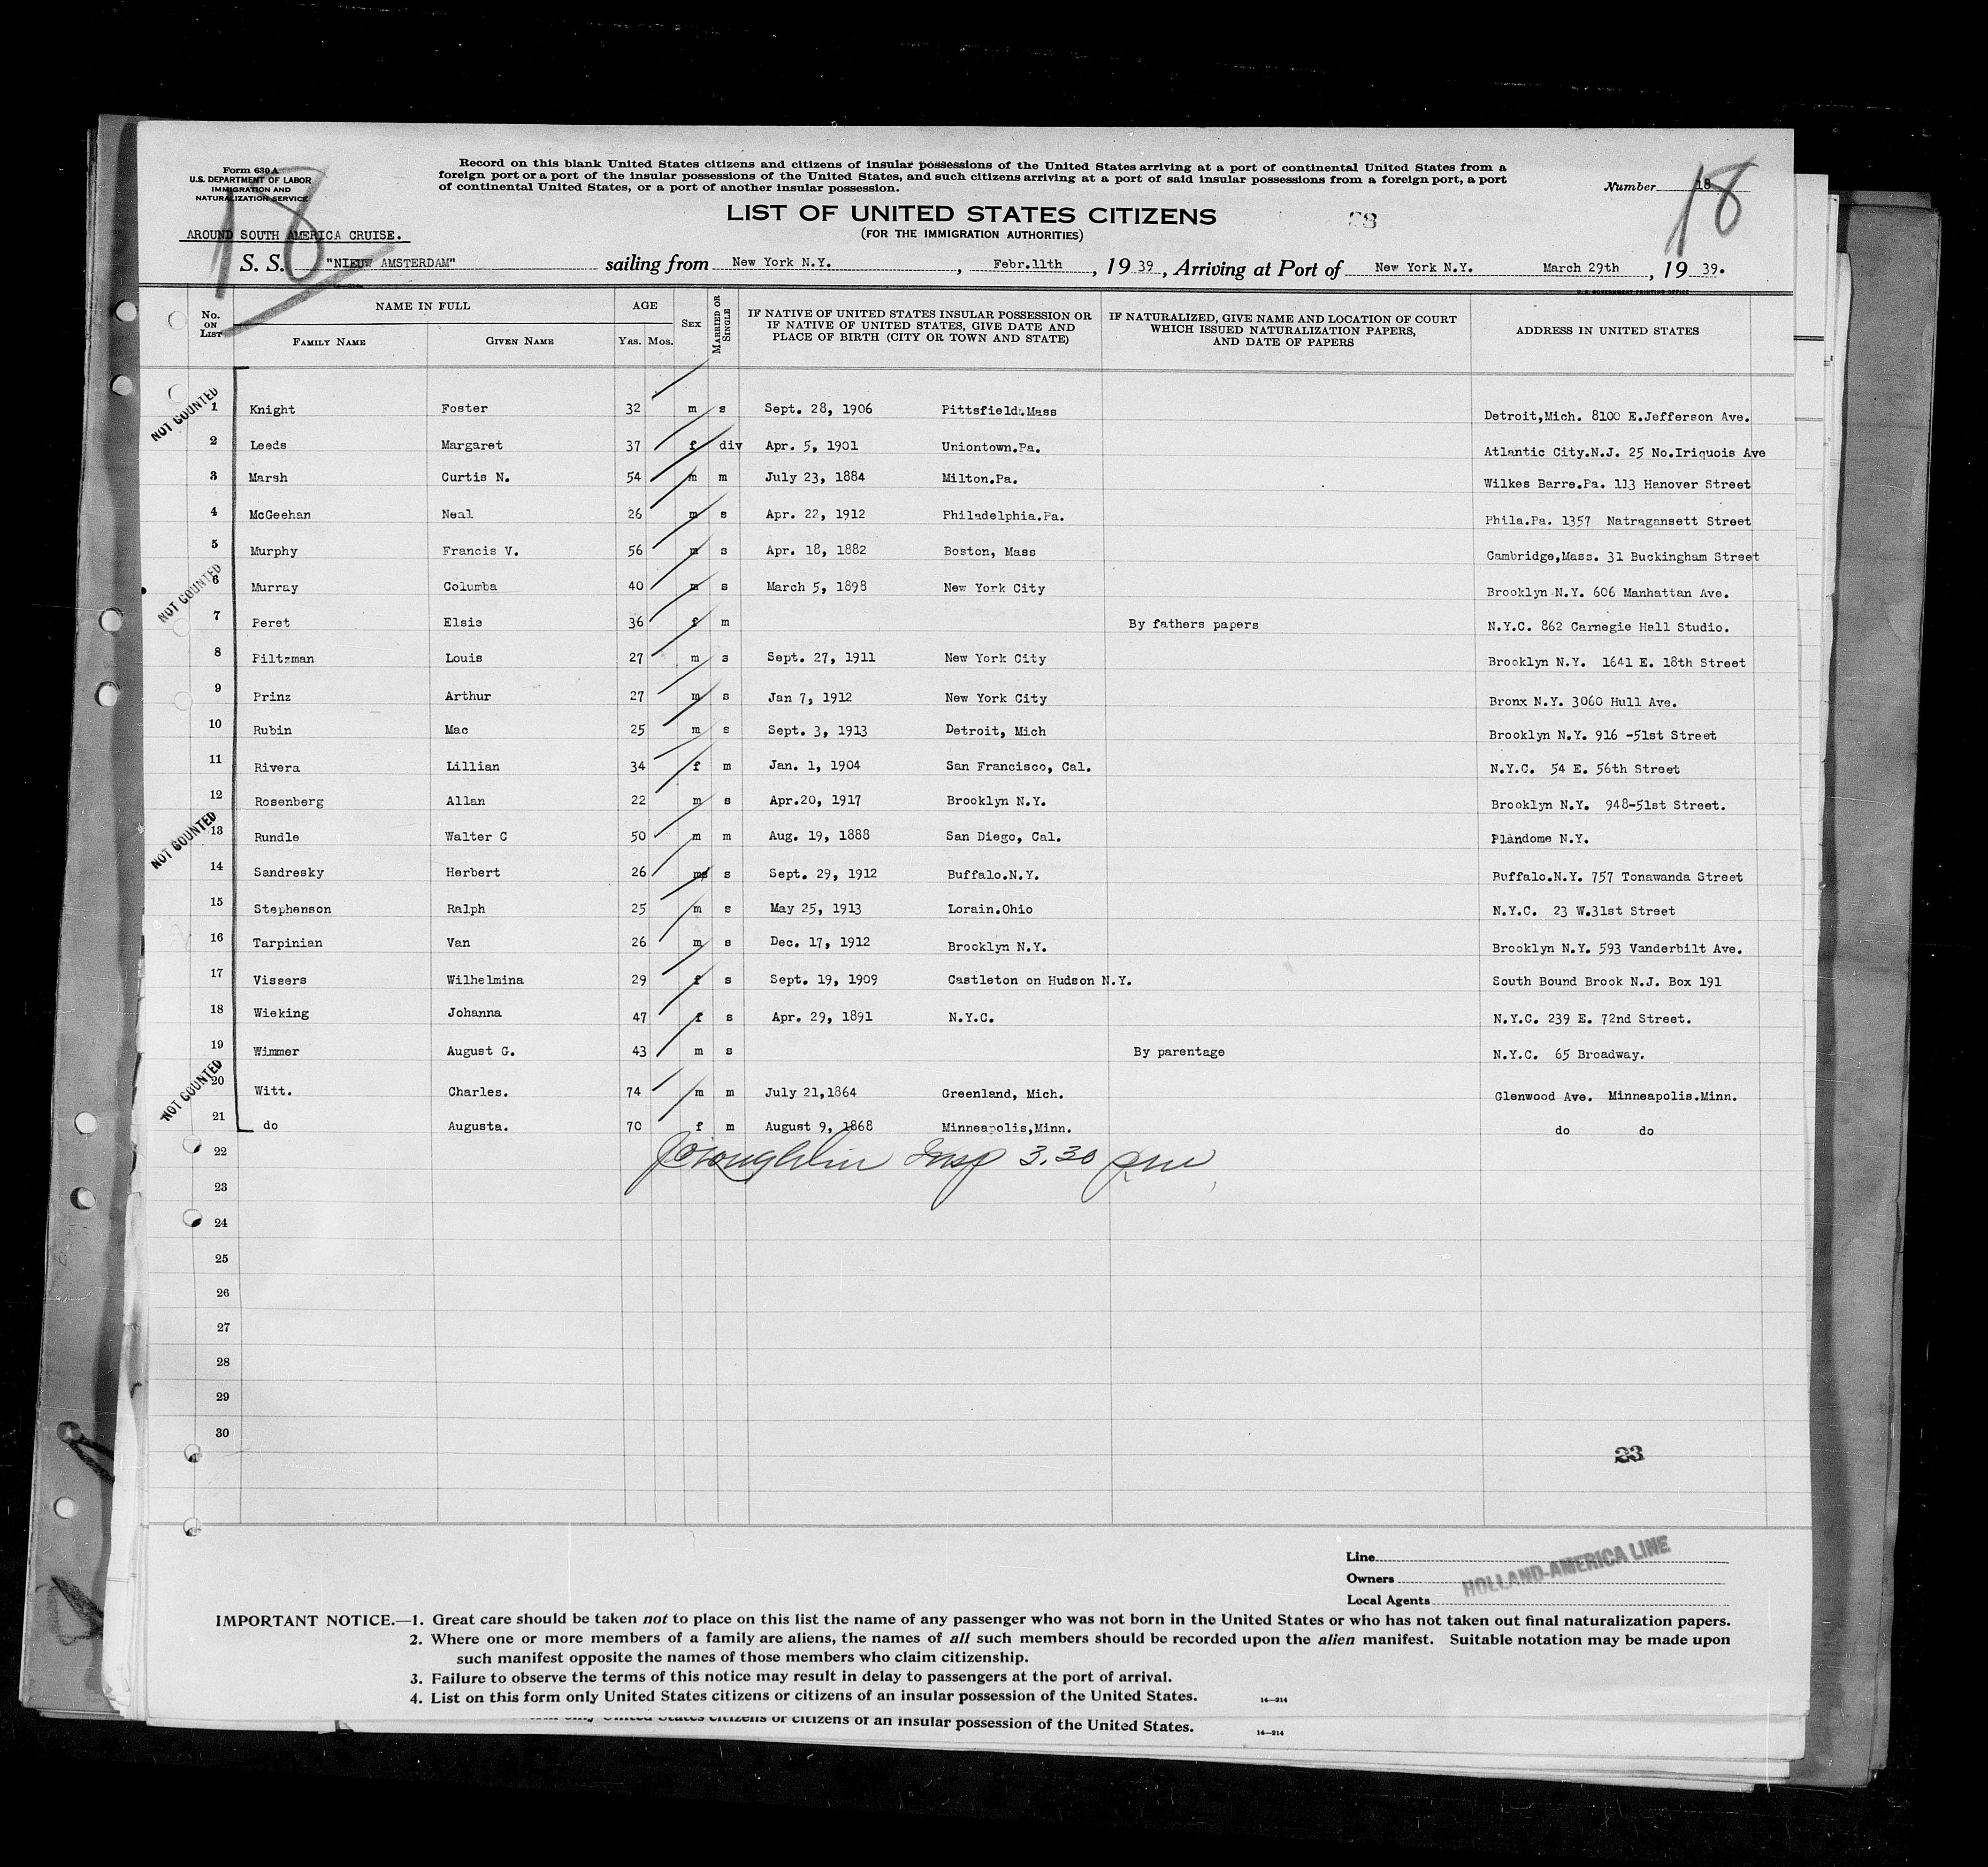 Form 630 A
U.S. DEPARTMENT OF LABOR
IMMIGRATION AND
NATURALIZATION SERVICE
18
Record on this blank United States citizens and citizens of insular possessions of the United States arriving at a port of continental United States from a
foreign port or a port of the insular possessions of the United States, and such citizens arriving at a port of said insular possessions from a foreign port, a port
of continental United States, or a port of another insular possession.
Number 18
18
LIST OF UNITED STATES CITIZENS
(FOR THE IMMIGRATION AUTHORITIES)
AROUND SOUTH AMERICA CRUISE.
S. S. "NIEUW AMSTERDAM" sailing from New York N.Y. , Febr.11th , 19 39 , Arriving at Port of New York N.Y. March 29th , 19 39.
U.S. GOVERNMENT PRINTING OFFICE
No. ON LIST NAME IN FULL FAMILY NAME GIVEN NAME AGE YRS. MOS. SEX MARRIED OR SINGLE IF NATIVE OF UNITED STATES INSULAR POSSESSION OR IF NATIVE OF UNITED STATES, GIVE DATE AND PLACE OF BIRTH (CITY OR TOWN AND STATE) IF NATURALIZED, GIVE NAME AND LOCATION OF COURT WHICH ISSUED NATURALIZATION PAPERS, AND DATE OF PAPERS ADDRESS IN UNITED STATES
NOT COUNTED
1 Knight Foster 32 m s Sept. 28, 1906 Pittsfield.Mass Detroit,Mich. 8100 E.Jefferson Ave.
2 Leeds Margaret 37 f div Apr. 5, 1901 Uniontown.Pa. Atlantic City.N.J. 25 No.Iriquois Ave
3 Marsh Curtis N. 54 m m July 23, 1884 Milton.Pa. Wilkes Barre.Pa. 113 Hanover Street
4 McGeehan Neal 26 m s Apr. 22, 1912 Philadelphia.Pa. Phila.Pa. 1357 Natragansett Street
5 Murphy Francis V. 56 m s Apr. 18, 1882 Boston, Mass Cambridge,Mass. 31 Buckingham Street
NOT COUNTED
6 Murray Columba 40 m s March 5, 1898 New York City Brooklyn N.Y. 606 Manhattan Ave.
7 Peret Elsie 36 f m By fathers papers N.Y.C. 862 Carnegie Hall Studio.
8 Piltzman Louis 27 m s Sept. 27, 1911 New York City Brooklyn N.Y. 1641 E. 18th Street
9 Prinz Arthur 27 m s Jan 7, 1912 New York City Bronx N.Y. 3060 Hull Ave.
10 Rubin Mac 25 m s Sept. 3, 1913 Detroit, Mich Brooklyn N.Y. 916 -51st Street
11 Rivera Lillian 34 f m Jan. 1, 1904 San Francisco, Cal. N.Y.C. 54 E. 56th Street
12 Rosenberg Allan 22 m s Apr.20, 1917 Brooklyn N.Y. Brooklyn N.Y. 948-51st Street.
NOT COUNTED
13 Rundle Walter C 50 m m Aug. 19, 1888 San Diego, Cal. Plandome N.Y.
14 Sandresky Herbert 26 m s Sept. 29, 1912 Buffalo.N.Y. Buffalo.N.Y. 757 Tonawanda Street
15 Stephenson Ralph 25 m s May 25, 1913 Lorain.Ohio N.Y.C. 23 W.31st Street
16 Tarpinian Van 26 m s Dec. 17, 1912 Brooklyn N.Y. Brooklyn N.Y. 593 Vanderbilt Ave.
17 Vissers Wilhelmina 29 f s Sept. 19, 1909 Castleton on Hudson N.Y. South Bound Brook N.J. Box 191
18 Wieking Johanna 47 f s Apr. 29, 1891 N.Y.C. N.Y.C. 239 E. 72nd Street.
19 Wimmer August G. 43 m s By parentage N.Y.C. 65 Broadway.
NOT COUNTED
20 Witt. Charles. 74 m m July 21,1864 Greenland, Mich. Glenwood Ave. Minneapolis.Minn.
21 do Augusta. 70 f m August 9, 1868 Minneapolis,Minn. do do
22 Insp 3.30 pm
23
24
25
26
27
28
29
30
23
Line
Owners
HOLLAND-AMERICA LINE
Local Agents
IMPORTANT NOTICE.—1. Great care should be taken not to place on this list the name of any passenger who was not born in the United States or who has not taken out final naturalization papers.
2. Where one or more members of a family are aliens, the names of all such members should be recorded upon the alien manifest. Suitable notation may be made upon
such manifest opposite the names of those members who claim citizenship.
3. Failure to observe the terms of this notice may result in delay to passengers at the port of arrival.
4. List on this form only United States citizens or citizens of an insular possession of the United States. 14—214
only United States citizens or citizens of an insular possession of the United States. 14—214